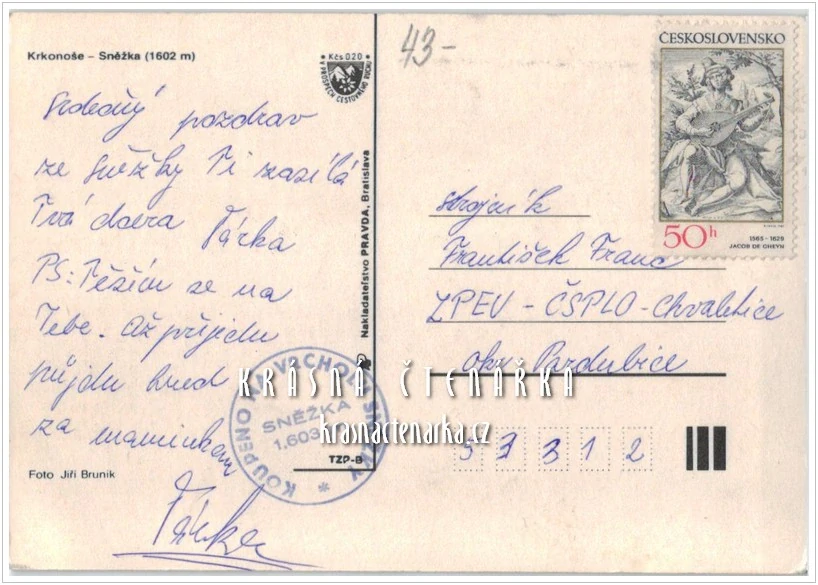 Krkonoše – Sněžka (1602 m)
Kčs 0.20
V PROSPĚCH CESTOVNÉHO RUCHU
Srdečný pozdrav
ze Sněžky Ti zasílá
Tvá dcera Šárka
PS: Těším se na
Tebe. Až přijedu
půjdu hned
za maminkou
Šárka
Foto Jiří Bruník
Nakladateľstvo PRAVDA, Bratislava
KOUPENO NA VRCHOLU SNĚŽKY
SNĚŽKA
1.603
TZP-B
43-
ČESKOSLOVENSKO
50h
1565-1629
JACOB DE GHEYN
strojník
František Franc
ZPEV - ČSPLO - Chvaletice
okr. Pardubice
53312
KRÁSNÁ ČTENÁŘKA
krasnactenarka.cz